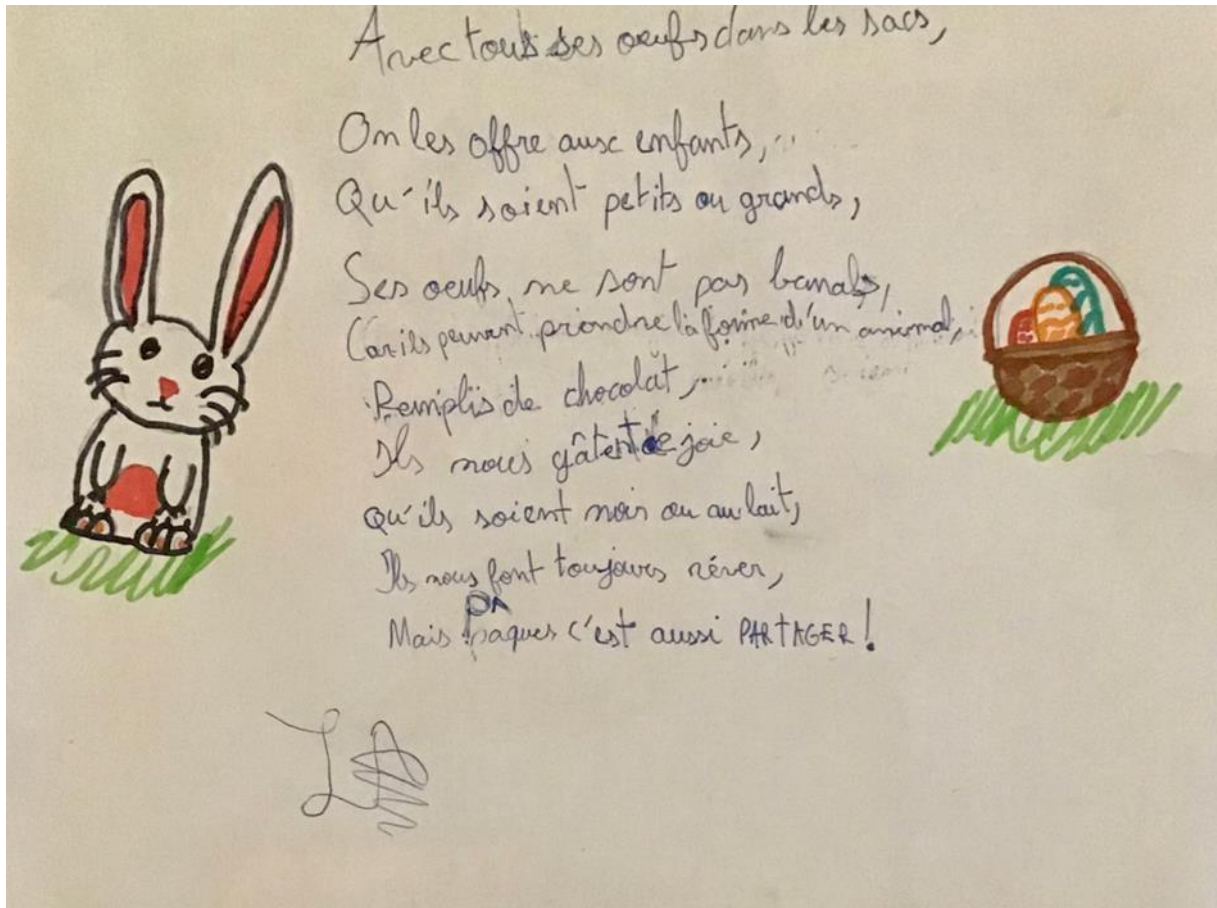 Avec tous ses oeufs dans les sacs,
On les offre aux enfants,
Qu'ils soient petits ou grands,
Ses oeufs ne sont pas banals,
Car ils peuvent prendre la forme d'un animal,
Remplis de chocolat,
Ils nous gâtent de joie,
qu'ils soient noir ou au lait,
Ils nous font toujours rêver,
Mais Pâques c'est aussi PARTAGER !